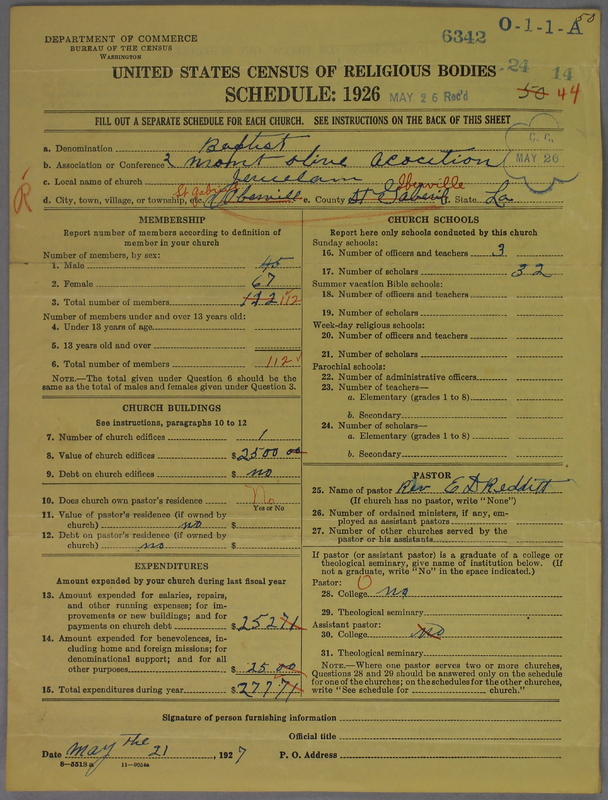 DEPARTMENT OF COMMERCE
BUREAU OF THE CENSUS
WASHINGTON
6342 O-1-1-A 50
-24 14
UNITED STATES CENSUS OF RELIGIOUS BODIES
SCHEDULE: 1926 MAY 26 Rec'd 50 44
FILL OUT A SEPARATE SCHEDULE FOR EACH CHURCH. SEE INSTRUCTIONS ON THE BACK OF THIS SHEET
C. C.
MAY 26
a. Denomination Baptist
b. Association or Conference mont olive acocition
c. Local name of church Jeruelam Iberville
R
d. City, town, village, or township, etc. St Gabriel e. County St Gaberil State La
MEMBERSHIP
Report number of members according to definition of member in your church
Number of members, by sex:
1. Male 45
2. Female 67
3. Total number of members 112 112
Number of members under and over 13 years old:
4. Under 13 years of age
5. 13 years old and over
6. Total number of members 112
NOTE.—The total given under Question 6 should be the same as the total of males and females given under Question 3.
CHURCH BUILDINGS
See instructions, paragraphs 10 to 12
7. Number of church edifices 1
8. Value of church edifices $2500 00
9. Debt on church edifices $ no
10. Does church own pastor's residence No
Yes or No
11. Value of pastor's residence (if owned by church) no $
12. Debt on pastor's residence (if owned by church) no $
EXPENDITURES
Amount expended by your church during last fiscal year
13. Amount expended for salaries, repairs, and other running expenses; for improvements or new buildings; and for payments on church debt $ 252 71
14. Amount expended for benevolences, including home and foreign missions; for denominational support; and for all other purposes $ 25.00
15. Total expenditures during year $ 277.71
CHURCH SCHOOLS
Report here only schools conducted by this church
Sunday schools:
16. Number of officers and teachers 3
17. Number of scholars 32
Summer vacation Bible schools:
18. Number of officers and teachers
19. Number of scholars
Week-day religious schools:
20. Number of officers and teachers
21. Number of scholars
Parochial schools:
22. Number of administrative officers
23. Number of teachers—
a. Elementary (grades 1 to 8)
b. Secondary
24. Number of scholars—
a. Elementary (grades 1 to 8)
b. Secondary
PASTOR
25. Name of pastor Rev E D Redditt
(If church has no pastor, write "None")
26. Number of ordained ministers, if any, employed as assistant pastors
27. Number of other churches served by the pastor or his assistants
If pastor (or assistant pastor) is a graduate of a college or theological seminary, give name of institution below. (If not a graduate, write "No" in the space indicated.)
Pastor: O
28. College no
29. Theological seminary
Assistant pastor:
30. College no
31. Theological seminary
NOTE.—Where one pastor serves two or more churches, Questions 28 and 29 should be answered only on the schedule for one of the churches; on the schedules for the other churches, write "See schedule for church."
Signature of person furnishing information
Official title
Date may the 21, 1927 P. O. Address
8—5518a 11—9054a